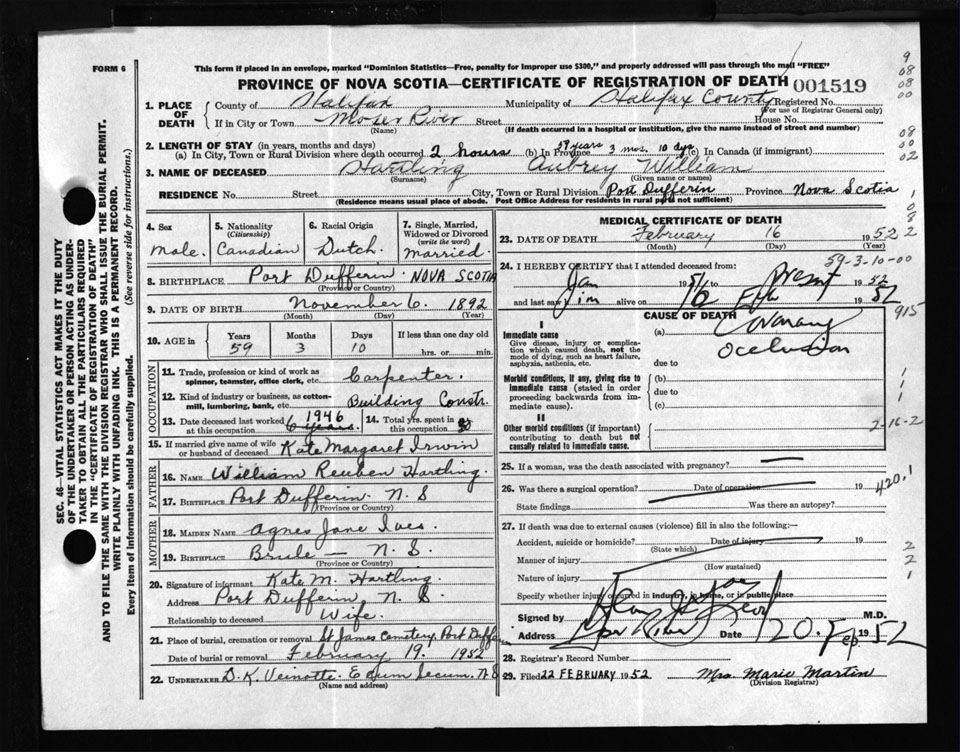 FORM 6
This form if placed in an envelope, marked "Dominion Statistics—Free, penalty for improper use $300," and properly addressed will pass through the mail "FREE"
PROVINCE OF NOVA SCOTIA—CERTIFICATE OF REGISTRATION OF DEATH 001519
1. PLACE OF DEATH
County of Halifax Municipality of Halifax County Registered No.
(For use of Registrar General only)
If in City or Town Moser River Street House No.
(Name) (If death occurred in a hospital or institution, give the name instead of street and number)
2. LENGTH OF STAY (in years, months and days)
(a) In City, Town or Rural Division where death occurred 2 hours (b) In Province 59 years 3 mos. 10 dys (c) In Canada (if immigrant)
3. NAME OF DECEASED Hartling Aubrey William
(Surname) (Given name or names)
RESIDENCE No. Street City, Town or Rural Division Port Dufferin Province Nova Scotia
(Residence means usual place of abode. Post Office Address for residents in rural parts not sufficient)
4. Sex
Male.
5. Nationality
(Citizenship)
Canadian
6. Racial Origin
Dutch.
7. Single, Married, Widowed or Divorced
(write the word)
Married.
8. BIRTHPLACE Port Dufferin NOVA SCOTIA
(Province or Country)
9. DATE OF BIRTH November 6. 1892
(Month) (Day) (Year)
10. AGE in
Years Months Days If less than one day old
59 3 10 hrs. or min.
OCCUPATION
11. Trade, profession or kind of work as spinner, teamster, office clerk, etc. Carpenter.
12. Kind of industry or business, as cotton-mill, lumbering, bank, etc. Building Constr.
13. Date deceased last worked at this occupation 1946 6 years
14. Total yrs. spent in this occupation 30
15. If married give name of wife or husband of deceased Kate Margaret Irwin
FATHER
16. NAME William Reuben Hartling.
17. BIRTHPLACE Port Dufferin. N.S
(Province or Country)
MOTHER
18. MAIDEN NAME Agnes Jane Ives
19. BIRTHPLACE Brule — N.S.
(Province or Country)
20. Signature of informant Kate M. Hartling.
Address Port Dufferin, N.S
Relationship to deceased Wife.
21. Place of burial, cremation or removal St James Cemetery, Port Dufferin
Date of burial or removal February 19. 1952
22. UNDERTAKER D.K. Veinotte. Ecum Secum. N.S
(Name and address)
MEDICAL CERTIFICATE OF DEATH
23. DATE OF DEATH February 16 1952
(Month) (Day) (Year)
59-3-10-00
24. I HEREBY CERTIFY that I attended deceased from:
Jan 1951 to Present 1952
and last saw him alive on 16 Feb 1952
CAUSE OF DEATH
I
Immediate cause
Give disease, injury or complication which caused death, not the mode of dying, such as heart failure, asphyxia, asthenia, etc.
(a) Coronary
Occlusion
due to
Morbid conditions, if any, giving rise to immediate cause (stated in order proceeding backwards from immediate cause).
(b)
due to
(c)
II
Other morbid conditions (if important) contributing to death but not causally related to immediate cause.
25. If a woman, was the death associated with pregnancy?
26. Was there a surgical operation? Date of operation 19
State findings Was there an autopsy?
27. If death was due to external causes (violence) fill in also the following:—
Accident, suicide or homicide? Date of injury 19
(State which)
Manner of injury
(How sustained)
Nature of injury
Specify whether injury occurred in industry, in home, or in public place
Signed by M.D.
Address Moser River Date 20 Feb. 1952
28. Registrar's Record Number
29. Filed 22 FEBRUARY 1952 Mrs. Marie Martin
(Division Registrar)
SEC. 46—VITAL STATISTICS ACT MAKES IT THE DUTY OF THE UNDERTAKER OR PERSON ACTING AS UNDERTAKER TO OBTAIN ALL THE PARTICULARS REQUIRED IN THE "CERTIFICATE OF REGISTRATION OF DEATH" AND TO FILE THE SAME WITH THE DIVISION REGISTRAR WHO SHALL ISSUE THE BURIAL PERMIT.
WRITE PLAINLY WITH UNFADING INK. THIS IS A PERMANENT RECORD.
Every item of information should be carefully supplied. (See reverse side for instructions.)
9
08
08
00
08
00
02
1
0
8
2
915
1
1
1
2-16-2
420.1
2
2
1